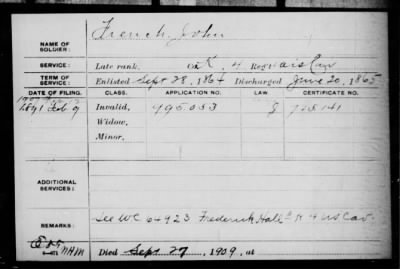 NAME OF SOLDIER: French, John
SERVICE: Late rank, Co. K, 4 Reg't Cav
TERM OF SERVICE: Enlisted Sept 28, 1864 Discharged June 20, 1865
DATE OF FILING. CLASS. APPLICATION NO. LAW. CERTIFICATE NO.
1891 Feb 9 Invalid, 995.053
Widow,
Minor,
ADDITIONAL SERVICES:
REMARKS: See WC 64923 Frederick Hall K 4 US Cav
Died Sept 27, 1909, at